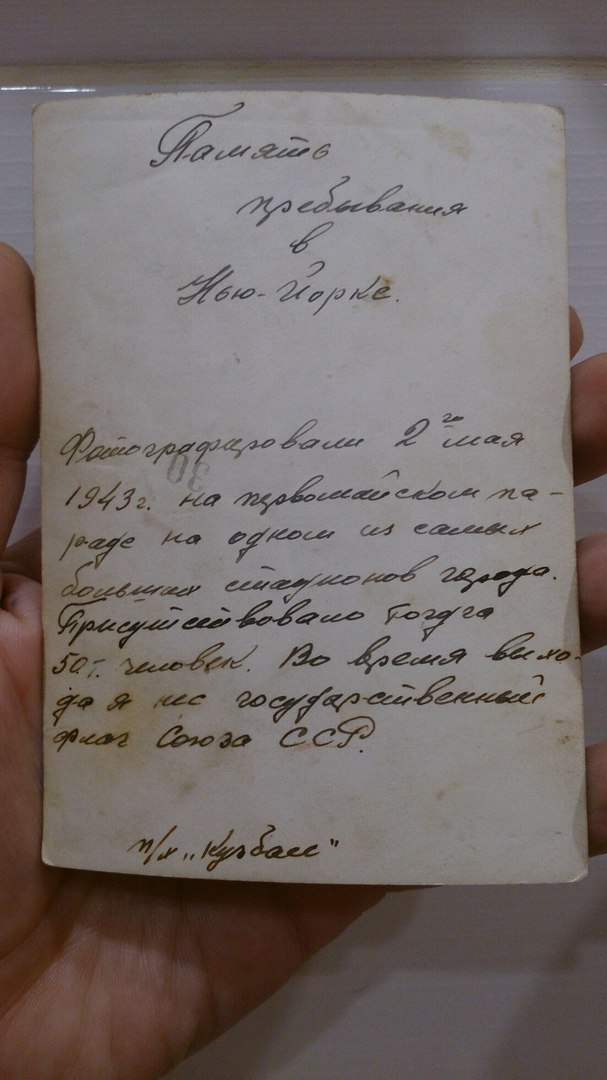 Память
пребывания
в
Нью-Йорке.
Фотографировали 2го мая
1943 г. на первомайском па-
раде на одном из самых
больших стадионов города.
Присутствовало тогда
50 т. человек. Во время выхо-
да я нес государственный
флаг Союза ССР.
п/х „Кузбасс"
30